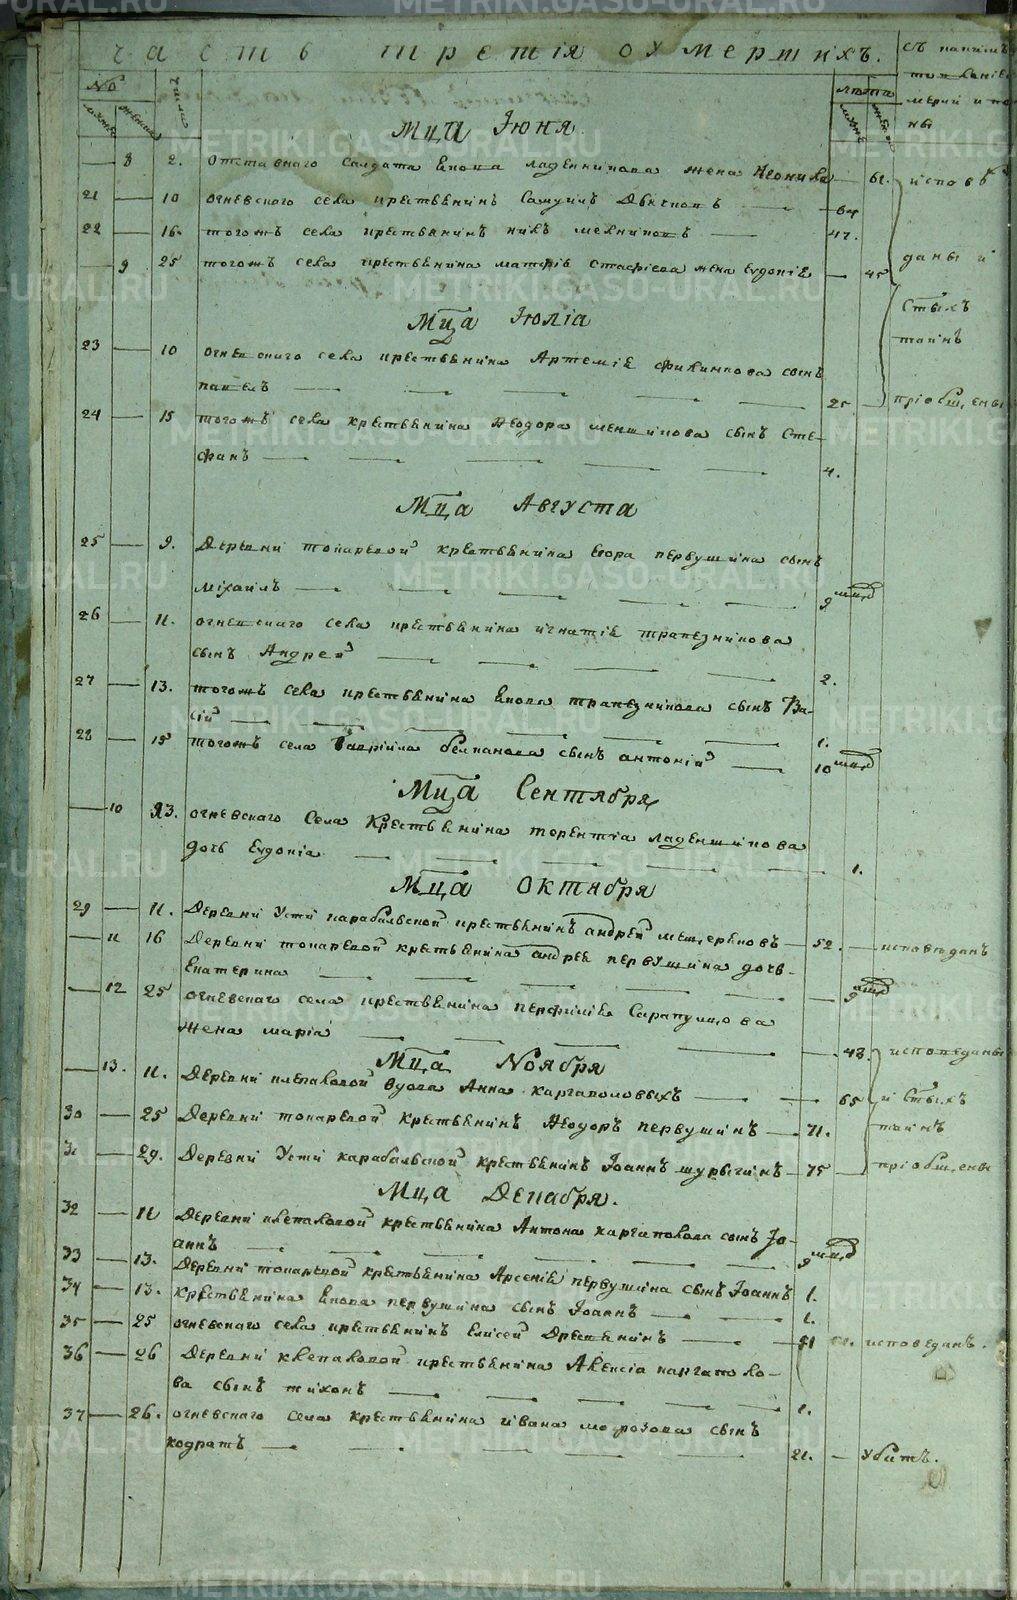 часть третія оумершихъ.
съ какимъ
№
числа
лѣта
мужес
женска
мерли и по-
ны
Мца Іюня
3 2. отставнаго салдата Якова ладейникова жена Неонила 61. исповѣ
21 10 огневского села крестьенинъ Самуилъ Двинковъ 64
22 16. тогожъ села крестьенинъ никъ мекниковъ 47.
даны и
9 25 тогожъ села крестьенина матфѣе стафіева жена Еудокіе 45
Стыхъ
Мца Іюліа
таинъ
23 10 огневскиго села крестьенина Артеміе филимкова сынъ
павелъ 25 пріобщены
24 15 тогожъ села крестьенина Неодора меншикова сынъ Сте-
фанъ 4.
Мца Августа
25 9. Деревни токаревой крестьенина егора первушина сынъ
Міхаилъ 9 мцд
26 11. огневскаго села крестьенина игнатіе трапезникова
сынъ Андрей 2.
27 13. тогожъ села крестьенина Якова трапезникова сынъ Ва-
сій 1.
28 15 тогожъ села Гавріила белканова сынъ антоній 10 мцд
Мца Сентября
10 23. огневскаго Села Крестьенина терентіа ладейшикова
дочь Еудокіа 1.
Мца октября
29 11. Деревни Усти карабальской крестьенинъ андрей мещерековъ 52. исповѣданъ
11 16 Деревни токаревой крестьенина андрее первушина дочь
Екатерина 9 мцд
12 25 огневскаго села крестьенина перфиліе Сарапулцова
Жена маріа 48. исповеданы
Мца Ноября
13. 11. Деревни клепаловой вдова Анна каргаполовыхъ 65 и Стыхъ
30 25 Деревни токаревой крестьенинъ Неодоръ первушинъ 71. таинъ
31 29. Деревни Усти карабальской крестьенинъ Іоаннъ шурыгинъ 75 пріобщены
Мца Декабря.
32 11 Деревни клепаловой крестьенина Антона каргаполова сынъ Іо-
аннъ 9 мцд
33 13. Деревни токаревой крестьенина Арсеніе первушина сынъ Іоаннъ 1.
34 13. крестьенина Якова первушина сынъ Іоаннъ 1.
35 25 огневскаго села крестьенинъ Елисей Древенинъ 51 исповеданъ.
36 26 Деревни клепаловой крестьенина Алексіа каргапол-
ва сынъ тихонъ 1.
37 26. огневскаго села крестьенина ивана морозова сынъ
кодратъ 21. Убитъ.
METRIKI.GASO-URAL.RU